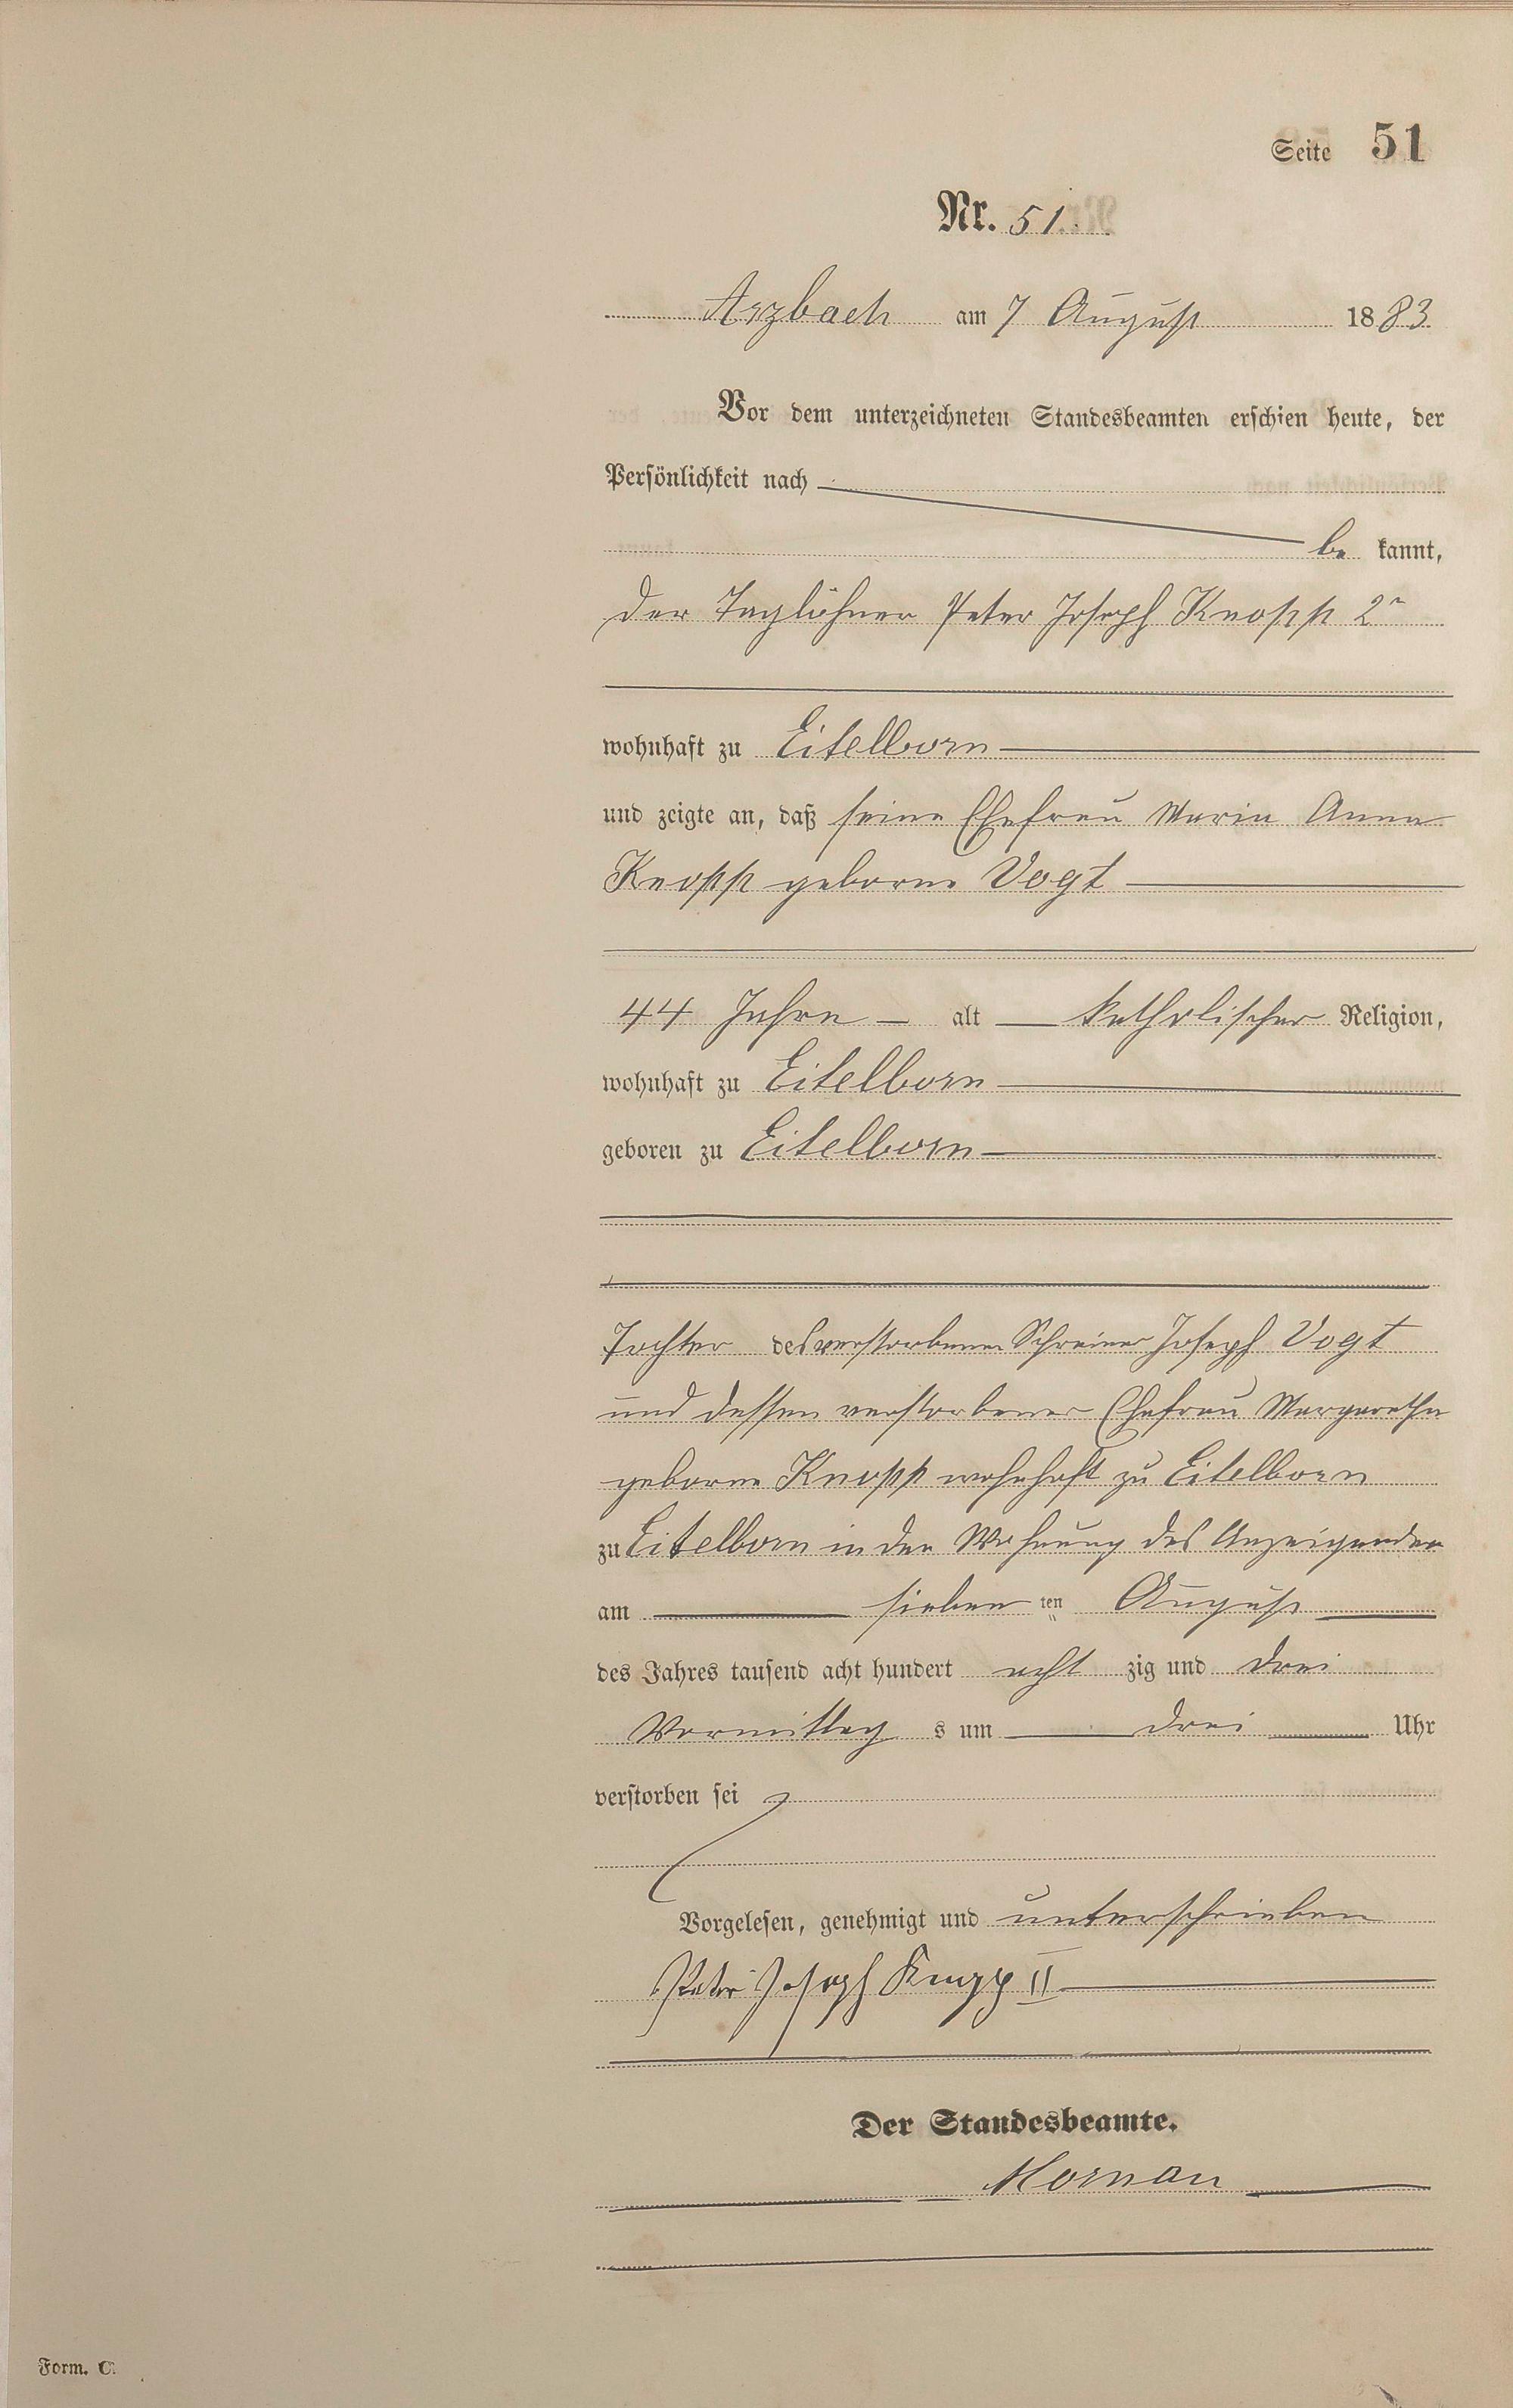 Seite 51
Nr. 51.
Arzbach am 7 August 1883
Vor dem unterzeichneten Standesbeamten erschien heute, der
Persönlichkeit nach
be kannt,
der Taglöhner Peter Joseph Knopp 2r
wohnhaft zu Eitelborn
und zeigte an, daß seine Ehefrau Maria Anna
Knopp geborne Vogt
44 Jahre alt katholischer Religion,
wohnhaft zu Eitelborn
geboren zu Eitelborn
Tochter des verstorbenen Schreiner Joseph Vogt
und dessen verstorbener Ehefrau Margaretha
geborne Knopp wohnhaft zu Eitelborn
zu Eitelborn in der Wohnung des Anzeigenden
am sieben ten August
des Jahres tausend acht hundert acht zig und drei
Vormittag s um drei Uhr
verstorben sei
Vorgelesen, genehmigt und unterschrieben
Peter Joseph Knopp II
Der Standesbeamte.
Form. C.